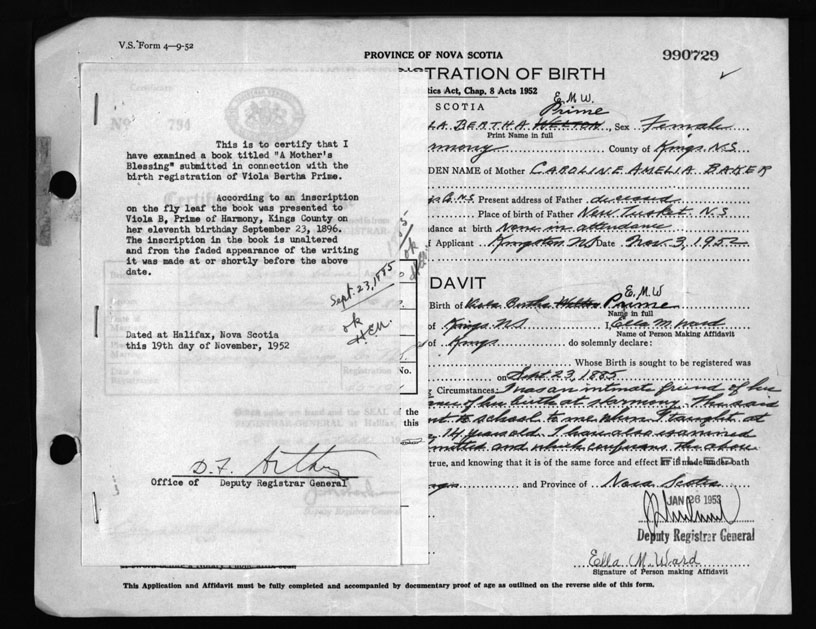 V.S. Form 4—9-52
PROVINCE OF NOVA SCOTIA
990729
TRATION OF BIRTH
tics Act, Chap. 8 Acts 1952
E.M.W.
SCOTIA
Prime
LA BERTHA WELTON, Sex Female
Print Name in full
rmony County of Kings, N.S
DEN NAME of Mother CAROLINE AMELIA BAKER
N.S Present address of Father deceased
Place of birth of Father New Tusket N.S
dance at birth None in attendance
f Applicant Kingston NS Date Nov. 3, 1952
No 794
This is to certify that I
have examined a book titled "A Mother's
Blessing" submitted in connection with the
birth registration of Viola Bertha Prime.
According to an inscription
on the fly leaf the book was presented to
Viola B, Prime of Harmony, Kings County on
her eleventh birthday September 23, 1896.
The inscription in the book is unaltered
and from the faded appearance of the writing
it was made at or shortly before the above
date.
Sept. 23, 1885
ok
Dated at Halifax, Nova Scotia
this 19th day of November, 1952
D. F. Arthur
Office of Deputy Registrar General
DAVIT
E.M.W
Birth of Viola Bertha Welton Prime
Name in full
of Kings NS I, Ella M Ward
Name of Person Making Affidavit
of Kings do solemnly declare:
Whose Birth is sought to be registered was
No.
on Sept 23, 1885
Circumstances: I was an intimate friend of her
of her birth at Harmony. The said
the
nt to school to me when I taught at
this
14 years old. I have also examined
mitted and which confirms the above
true, and knowing that it is of the same force and effect as if made under oath
FILED
and Province of Nova Scotia
JAN 26 1953
Deputy Registrar General
Ella M. Ward
Signature of Person making Affidavit
This Application and Affidavit must be fully completed and accompanied by documentary proof of age as outlined on the reverse side of this form.